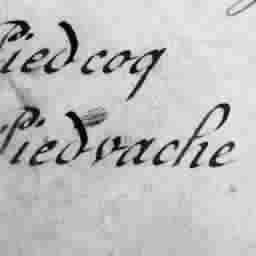 Piedcoq
Piedvache